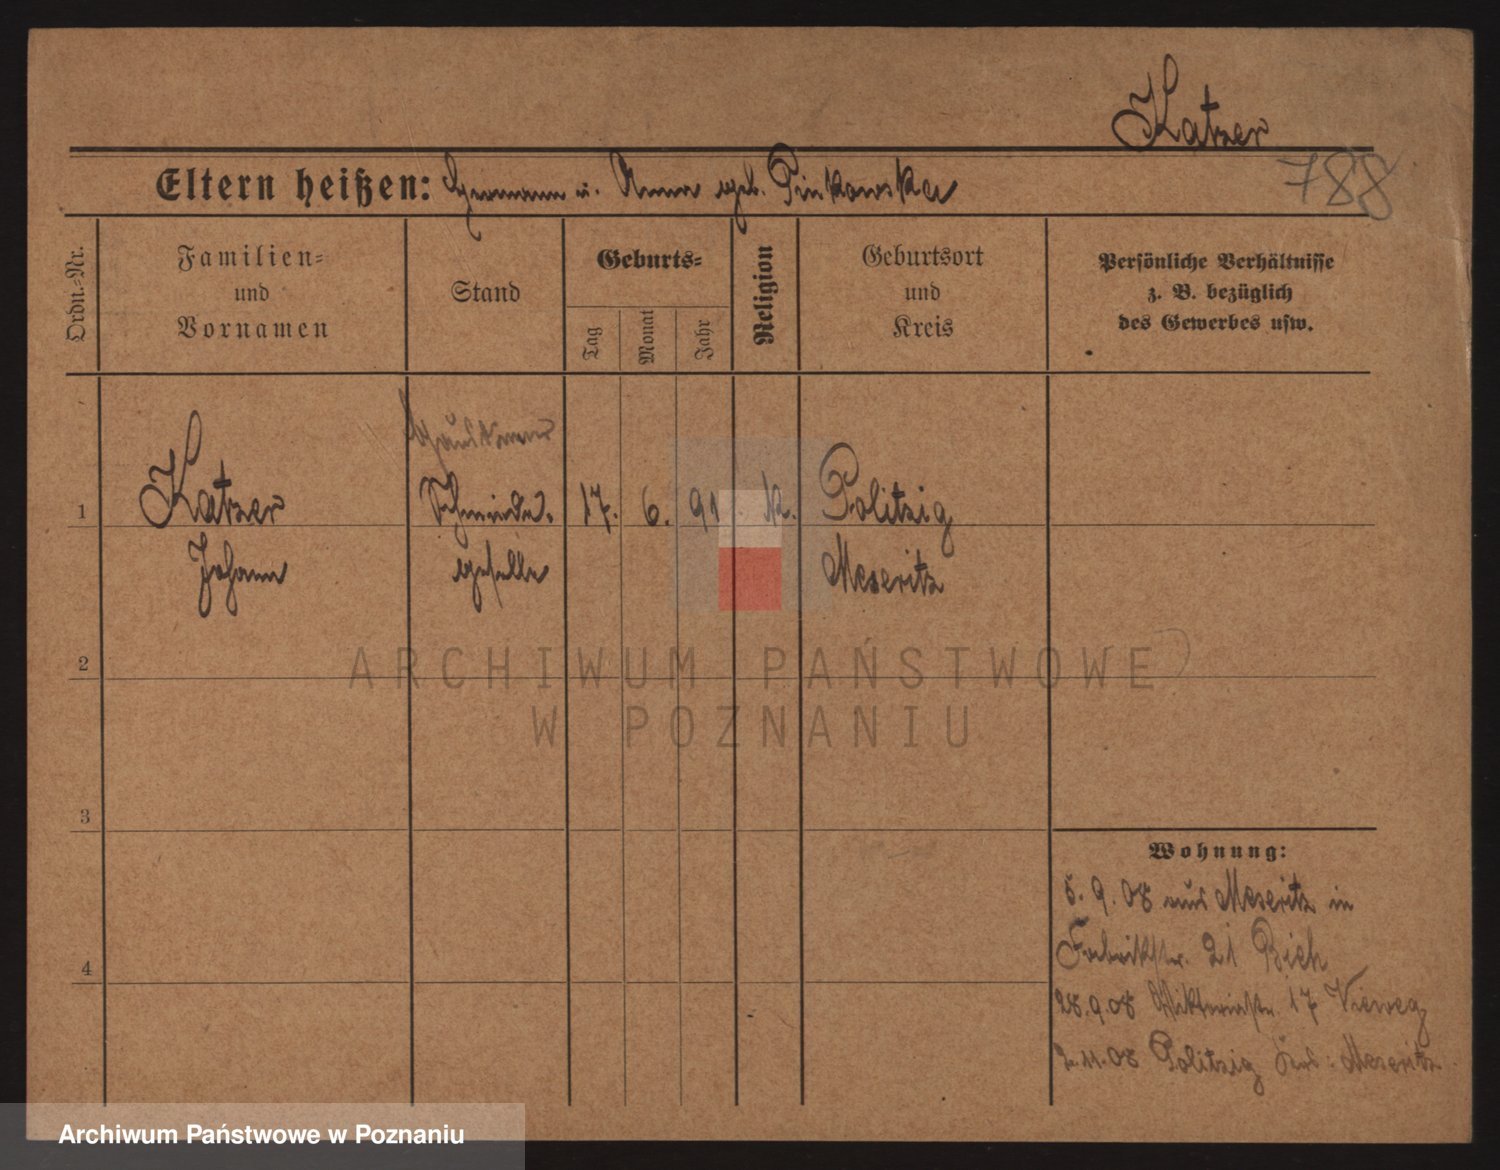 Katzer
788
Eltern heißen: Hermann u. Anna geb. Pinkowska
Ordn.-Nr.
Familien-
und
Vornamen
Stand
Geburts-
Tag
Monat
Jahr
Religion
Geburtsort
und
Kreis
Persönliche Verhältnisse
z. B. bezüglich
des Gewerbes usw.
1
Katzer
Johann
Schmiede-
geselle
17. 6. 91. K.
Politzig
Meseritz
2
3
4
Wohnung:
5. 9. 08 aus Meseritz in
Fabrikstr. 21 Bich
28.9.08 Viktoriastr. 17 Vieweg
2.11.08 Politzig Krs: Meseritz
ARCHIWUM PAŃSTWOWE
W POZNANIU
Archiwum Państwowe w Poznaniu